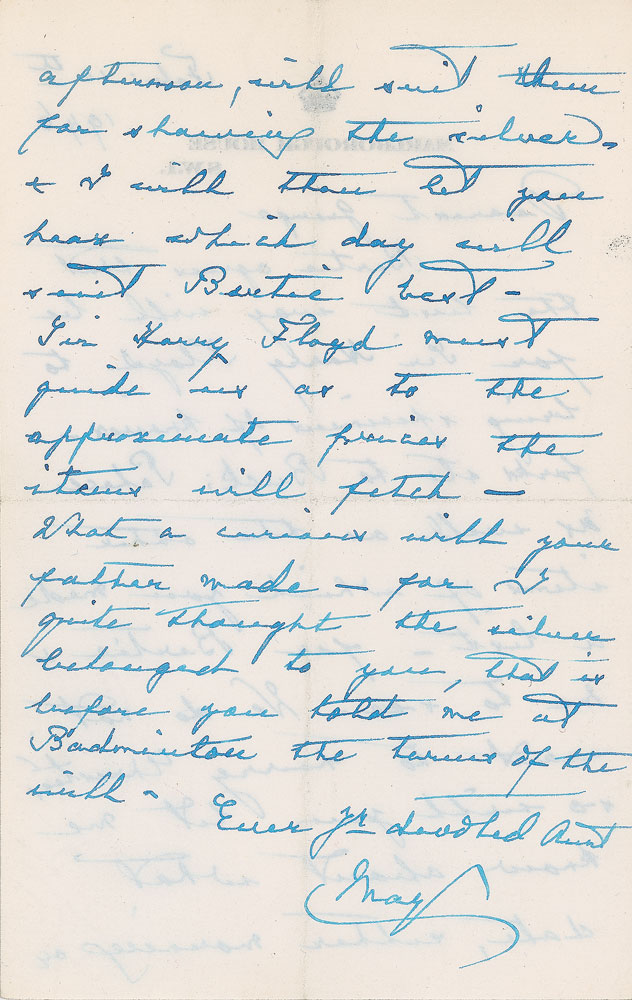 afternoon, will suit them
for showing the silver.
& I will then let you
hear which day will
suit Bertie best –
Sir Harry Floyd must
guide us as to the
approximate prices the
items will fetch –
What a curious will your
father made – for I
quite thought the silver
belonged to you, that is
before you told me at
Badminton the terms of the
will. Ever yr devoted Aunt
May